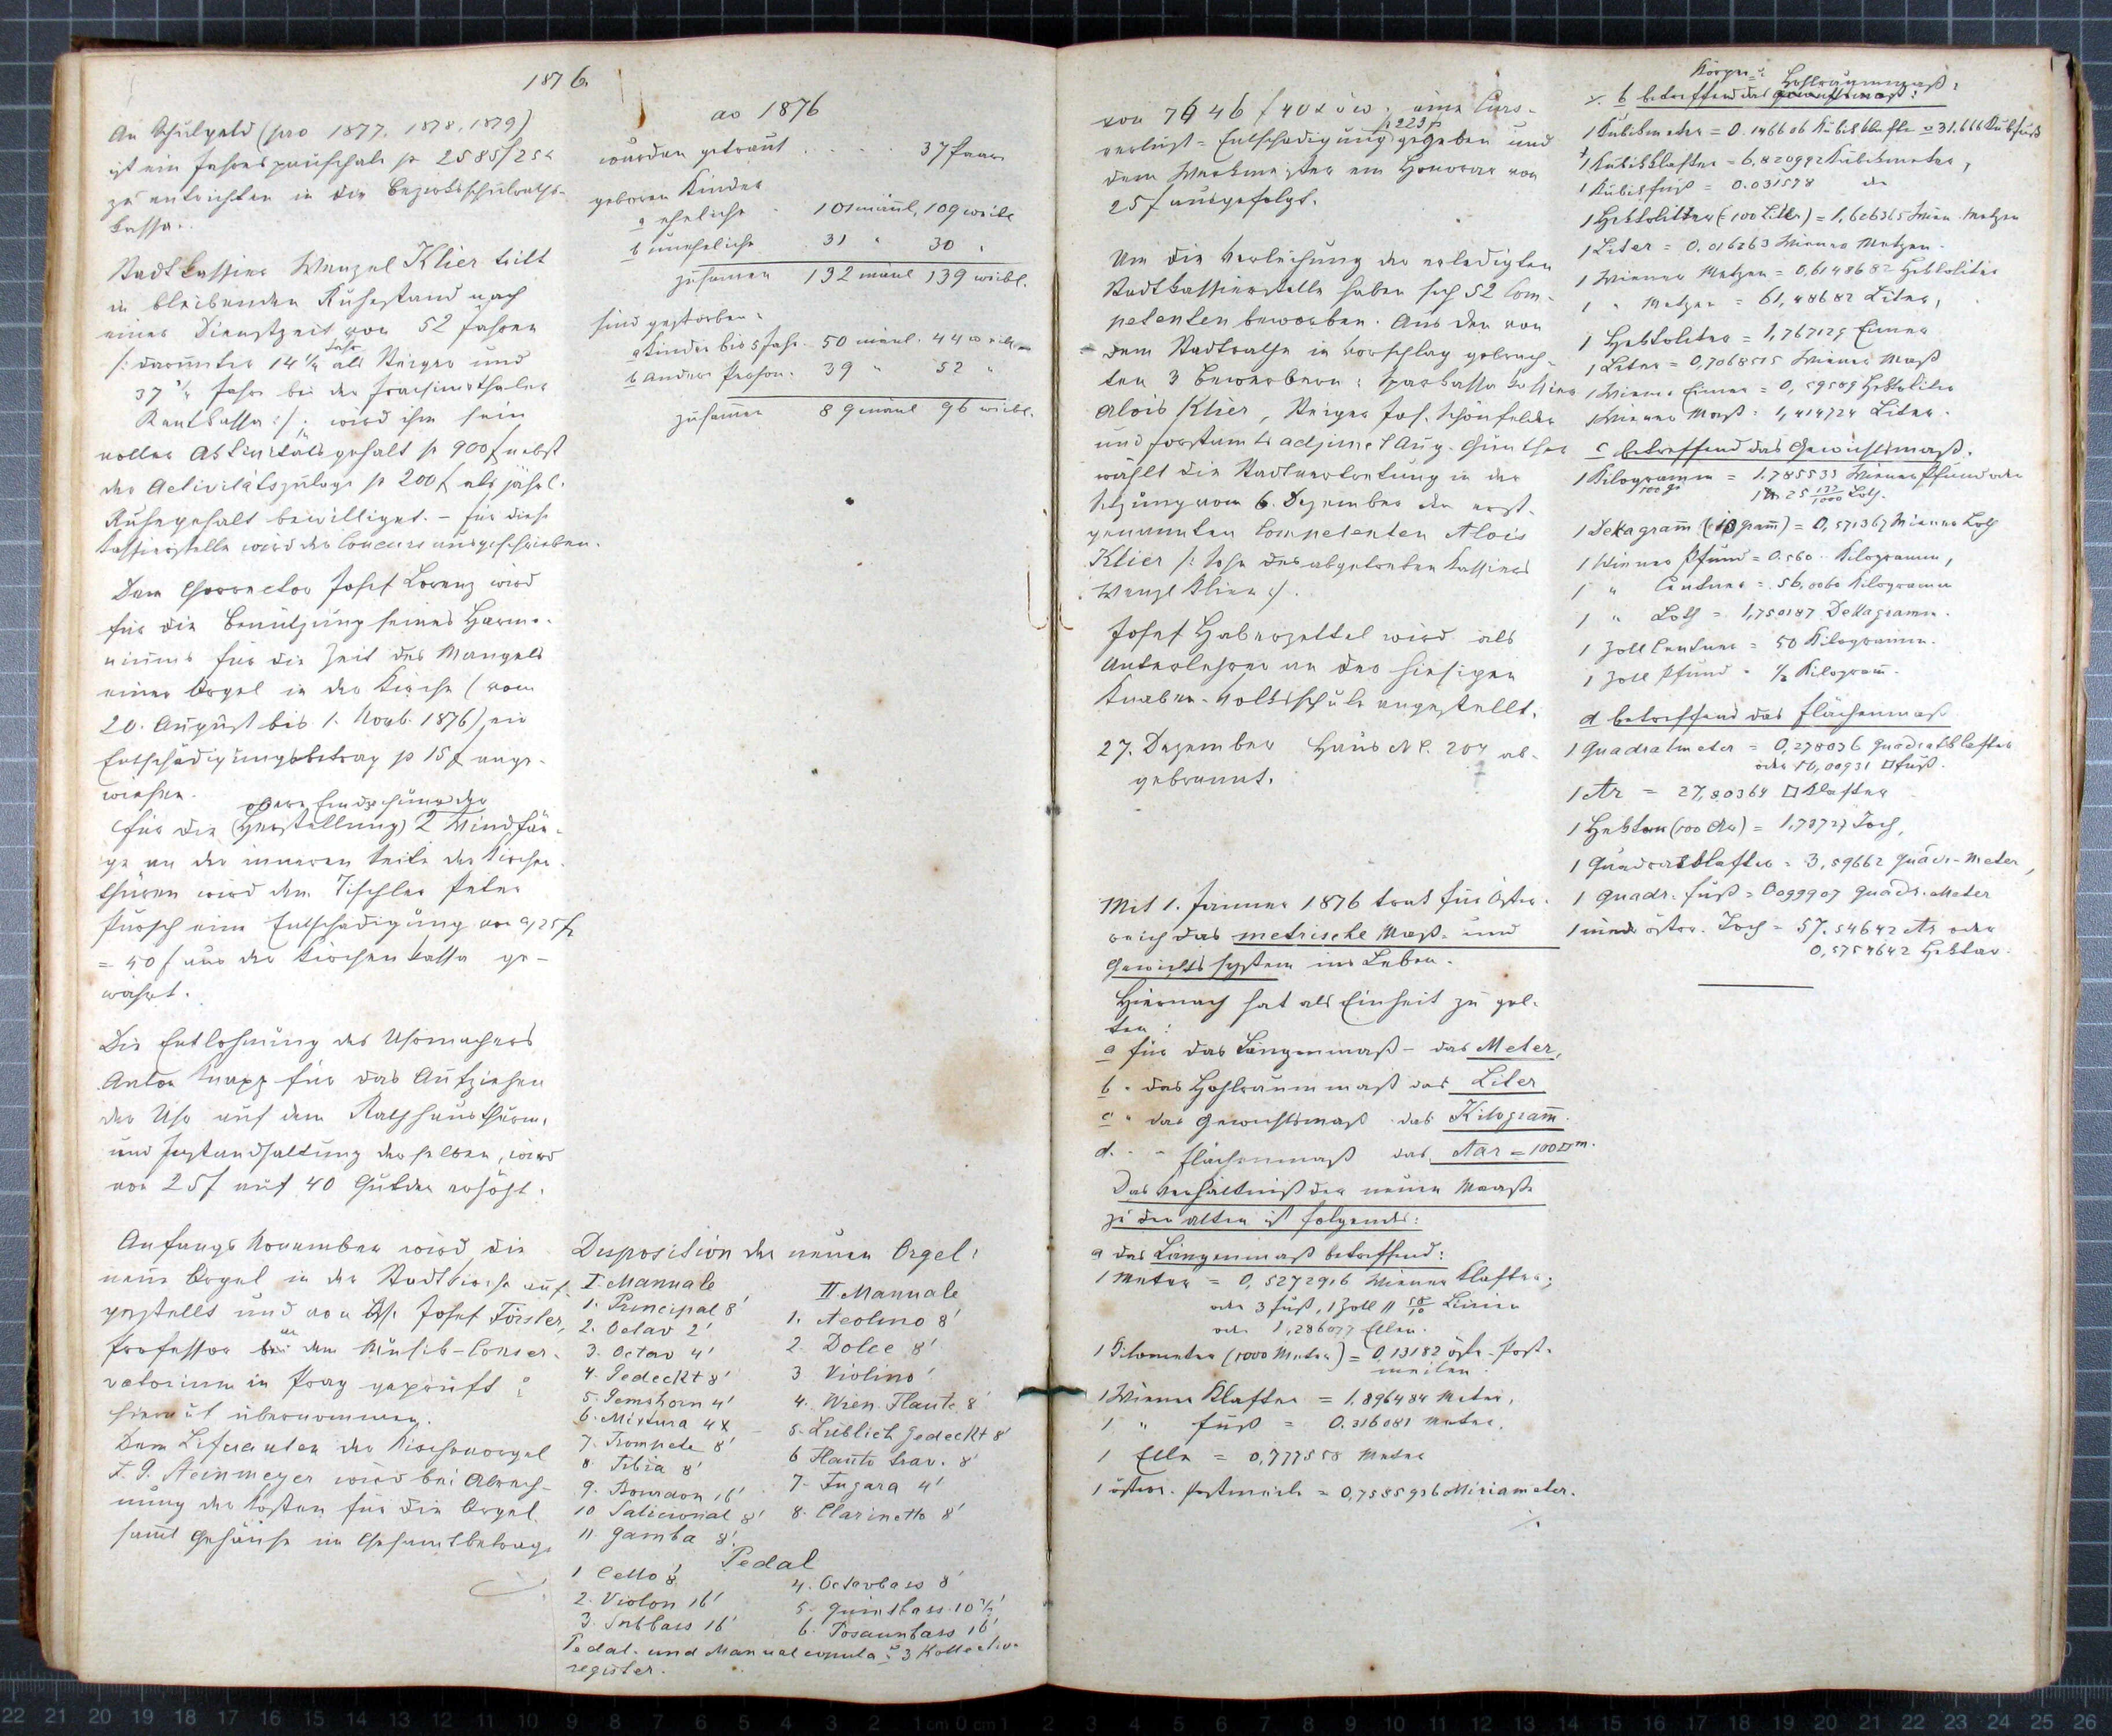 1876.
An Schulgeld (pro 1877, 1878, 1879)
ist ein Jahrespauschale pr 2585 f 25 x
zu entrichten in die Bezirksschulraths-
kassa.
Stadtkassier Wenzel Klier tritt
in bleibenden Ruhestand nach
einer Dienstzeit von 52 Jahren
/: darunter 14 1/4 Jahr als Steiger und
37 3/4 Jahr bei der Joachimsthaler
Rentkassa :/; wird ihm sein
voller Aktivitätsgehalt pr 900 f nebst
der Activitätszulage pr 200 f als jährl.
Ruhegehalt bewilliget. – Für diese
Kassierstelle wird der Concurs ausgeschrieben.
Dem Chorrector Josef Lorenz wird
für die Benützung seines Harmo-
niums für die Zeit des Mangels
einer Orgel in der Kirche (vom
20. August bis 1. Novb. 1876) ein
Entschädigungsbetrag pr 15 f ange-
wiesen.
Für die (Herstellung) 2 Windfän-
ge an der inneren Seite der Kirchen-
thüren wird dem Tischler Peter
Pursch eine Entschädigung von a/ 25 f
= 50 f aus der Kirchenkassa ge-
währt.
Die Entlohnung des Uhrmachers
Anton Knapp für das Aufziehen
der Uhr auf dem Rathhausthurm,
und Instandhaltung derselben, wird
von 25 f auf 40 Gulden erhöht.
Anfangs November wird die
neue Orgel in der Stadtkirche auf-
gestellt und von H. Josef Förster,
Professor an dem Musik-Conser-
vatorium in Prag geprüft u.
hierauf übernommen.
Dem Lieferanten der Kirchenorgel
F. G. Steinmeyer wird bei Abrech-
nung der Kosten für die Orgel
sammt Gehäuse im Gesammtbetrage
ao 1876
wurden getraut . . . . 37 Paare
geboren Kinder
a eheliche - 101 männl, 109 weibl
b uneheliche 31 " 30 "
zusamen 132 mänl 139 weibl.
sind gestorben:
a Kinder bis 5 Jahr. 50 mänl. 44 weibl
b andere Person. 39 " 52 "
zusamen 89 mänl 96 weibl.
Disposition der neuen Orgel:
I. Manuale
1. Principal 8'
2. Octav 2'
3. Octav 4'
4. Gedeckt 8'
5. Gemshorn 4'
6. Mixtura 4x
7. Trompete 8'
8. Tibia 8'
9. Bourdon 16'
10 Salicional 8'
11. Gamba 8'
II Manuale
1. Aeolino 8'
2. Dolce 8'
3 Violino'
4. Wien. Flaute 8'
5. Lieblich Gedeckt 8'
6 Flauto trav. 8'
7. Fugara 4'
8. Clarinetto 8'
Pedal
1 Cello 8'
2. Violon 16'
3. Subbass 16'
4. Octavbass 8'
5. Quintbass 10 2/3'
6. Posaunbass 16'
Pedal- und Manualcopula u. 3 Kollectiv-
register.
von 7646 f 40 x öw. eine Curs-
verlust-Entschädigung pr 223 f gegeben und
dem Werkmeister ein Honorar von
25 f ausgefolgt.
Um die Verleihung der erledigten
Stadtkassierstelle haben sich 52 Com-
petenten beworben. Aus den von
dem Stadtrathe in Vorschlag gebrach-
ten 3 Bewerbern: Sparkassa Kassier
Alois Klier, Steiger Jos. Schönfelder
und Forstamtsadjunct Aug. Günther
wählt die Stadtvertretung in der
Sitzung vom 6. Dezember den erst-
genannten Competenten Alois
Klier /: Sohn des abgetretenen Kassiers
Wenzl Klier :/.
Josef Haberzettel wird als
Unterlehrer an der hiesigen
Knaben-Volksschule angestellt.
27. Dezember Haus NC. 207 ab-
gebrannt.
Mit 1. Jänner 1876 trat für Öster-
reich das metrische Maß- und
Gewichtssystem ins Leben.
Hiernach hat als Einheit zu gel-
ten:
a für das Längenmaß – das Meter,
b " das Hohlraummaß das Liter
c " das Gewichtsmaß das Kilogramm.
d. " " Flächenmaß das Aar = 100 □m.
Das Verhältniß der neuen Maaße
zu den alten ist folgendes:
a das Längenmaß betreffend:
1 Meter = 0,5272916 Wiener Klafter;
oder 3 Fuß, 1 Zoll 11 58/10 Linien
oder 1,286077 Ellen.
1 Kilometer (1000 Meter) = 0,13182 östr. Post-
meilen.
1 Wiener Klafter = 1.896484 Meter,
1 " Fuß = 0.316081 Meter,
1 Elle = 0,777558 Meter
1 österr. Postmeile = 0,7585936 Miriameter.
./.
Körper- u. Hohlraummaß:
./. b betreffend das
1 Kubikmeter = 0.146606 Kubikklafter = 31.666 Kubfuß
1 Kubikklafter = 6,820992 Kubikmeter,
1 Kubikfuß = 0.031578 do
1 Hektoliter (= 100 Liter) = 1,626365 Wien. Metzen
1 Liter = 0.016263 Wiener Metzen.
1 Wiener Metzen = 0,6148682 Hektoliter
1 " Metzen = 61,48682 Liter,
1 Hektoliter = 1,767129 Eimer
1 Liter = 0,7068515 Wiener Maß
1 Wiener Eimer = 0,59589 Hektoliter
1 Wiener Maß = 1,414724 Liter.
c betreffend das Gewichtsmaß.
1 Kilogramm = 1.785533 Wiener Pfund oder
1 ℔ 25 137/1000 Loth.
1 Dekagramm (10 gramm) = 0,571367 Wiener Loth
1 Wiener Pfund = 0.560 . Kilogramm,
1 " Centner = 56,0060 Kilogramm
1 " Loth = 1,750187 Dekagramm.
1 Zoll Centner = 50 Kilogramm.
1 Zoll Pfund = 1/2 Kilogramm.
d betreffend das Flächenmaß
1 Quadratmeter = 0,278036 Quadratklafter
oder 10,00931 □Fuß.
1 Ar = 27,80364 □Klafter
1 Hektar (100 Ar) = 1,73727 Joch,
1 Quadratklafter = 3,59662 Quadr-Meter,
1 Quadr. Fuß = 0.099907 Quadr. Meter
1 nied. östr. Joch = 57.54642 Ar oder
0,5754642 Hektar.